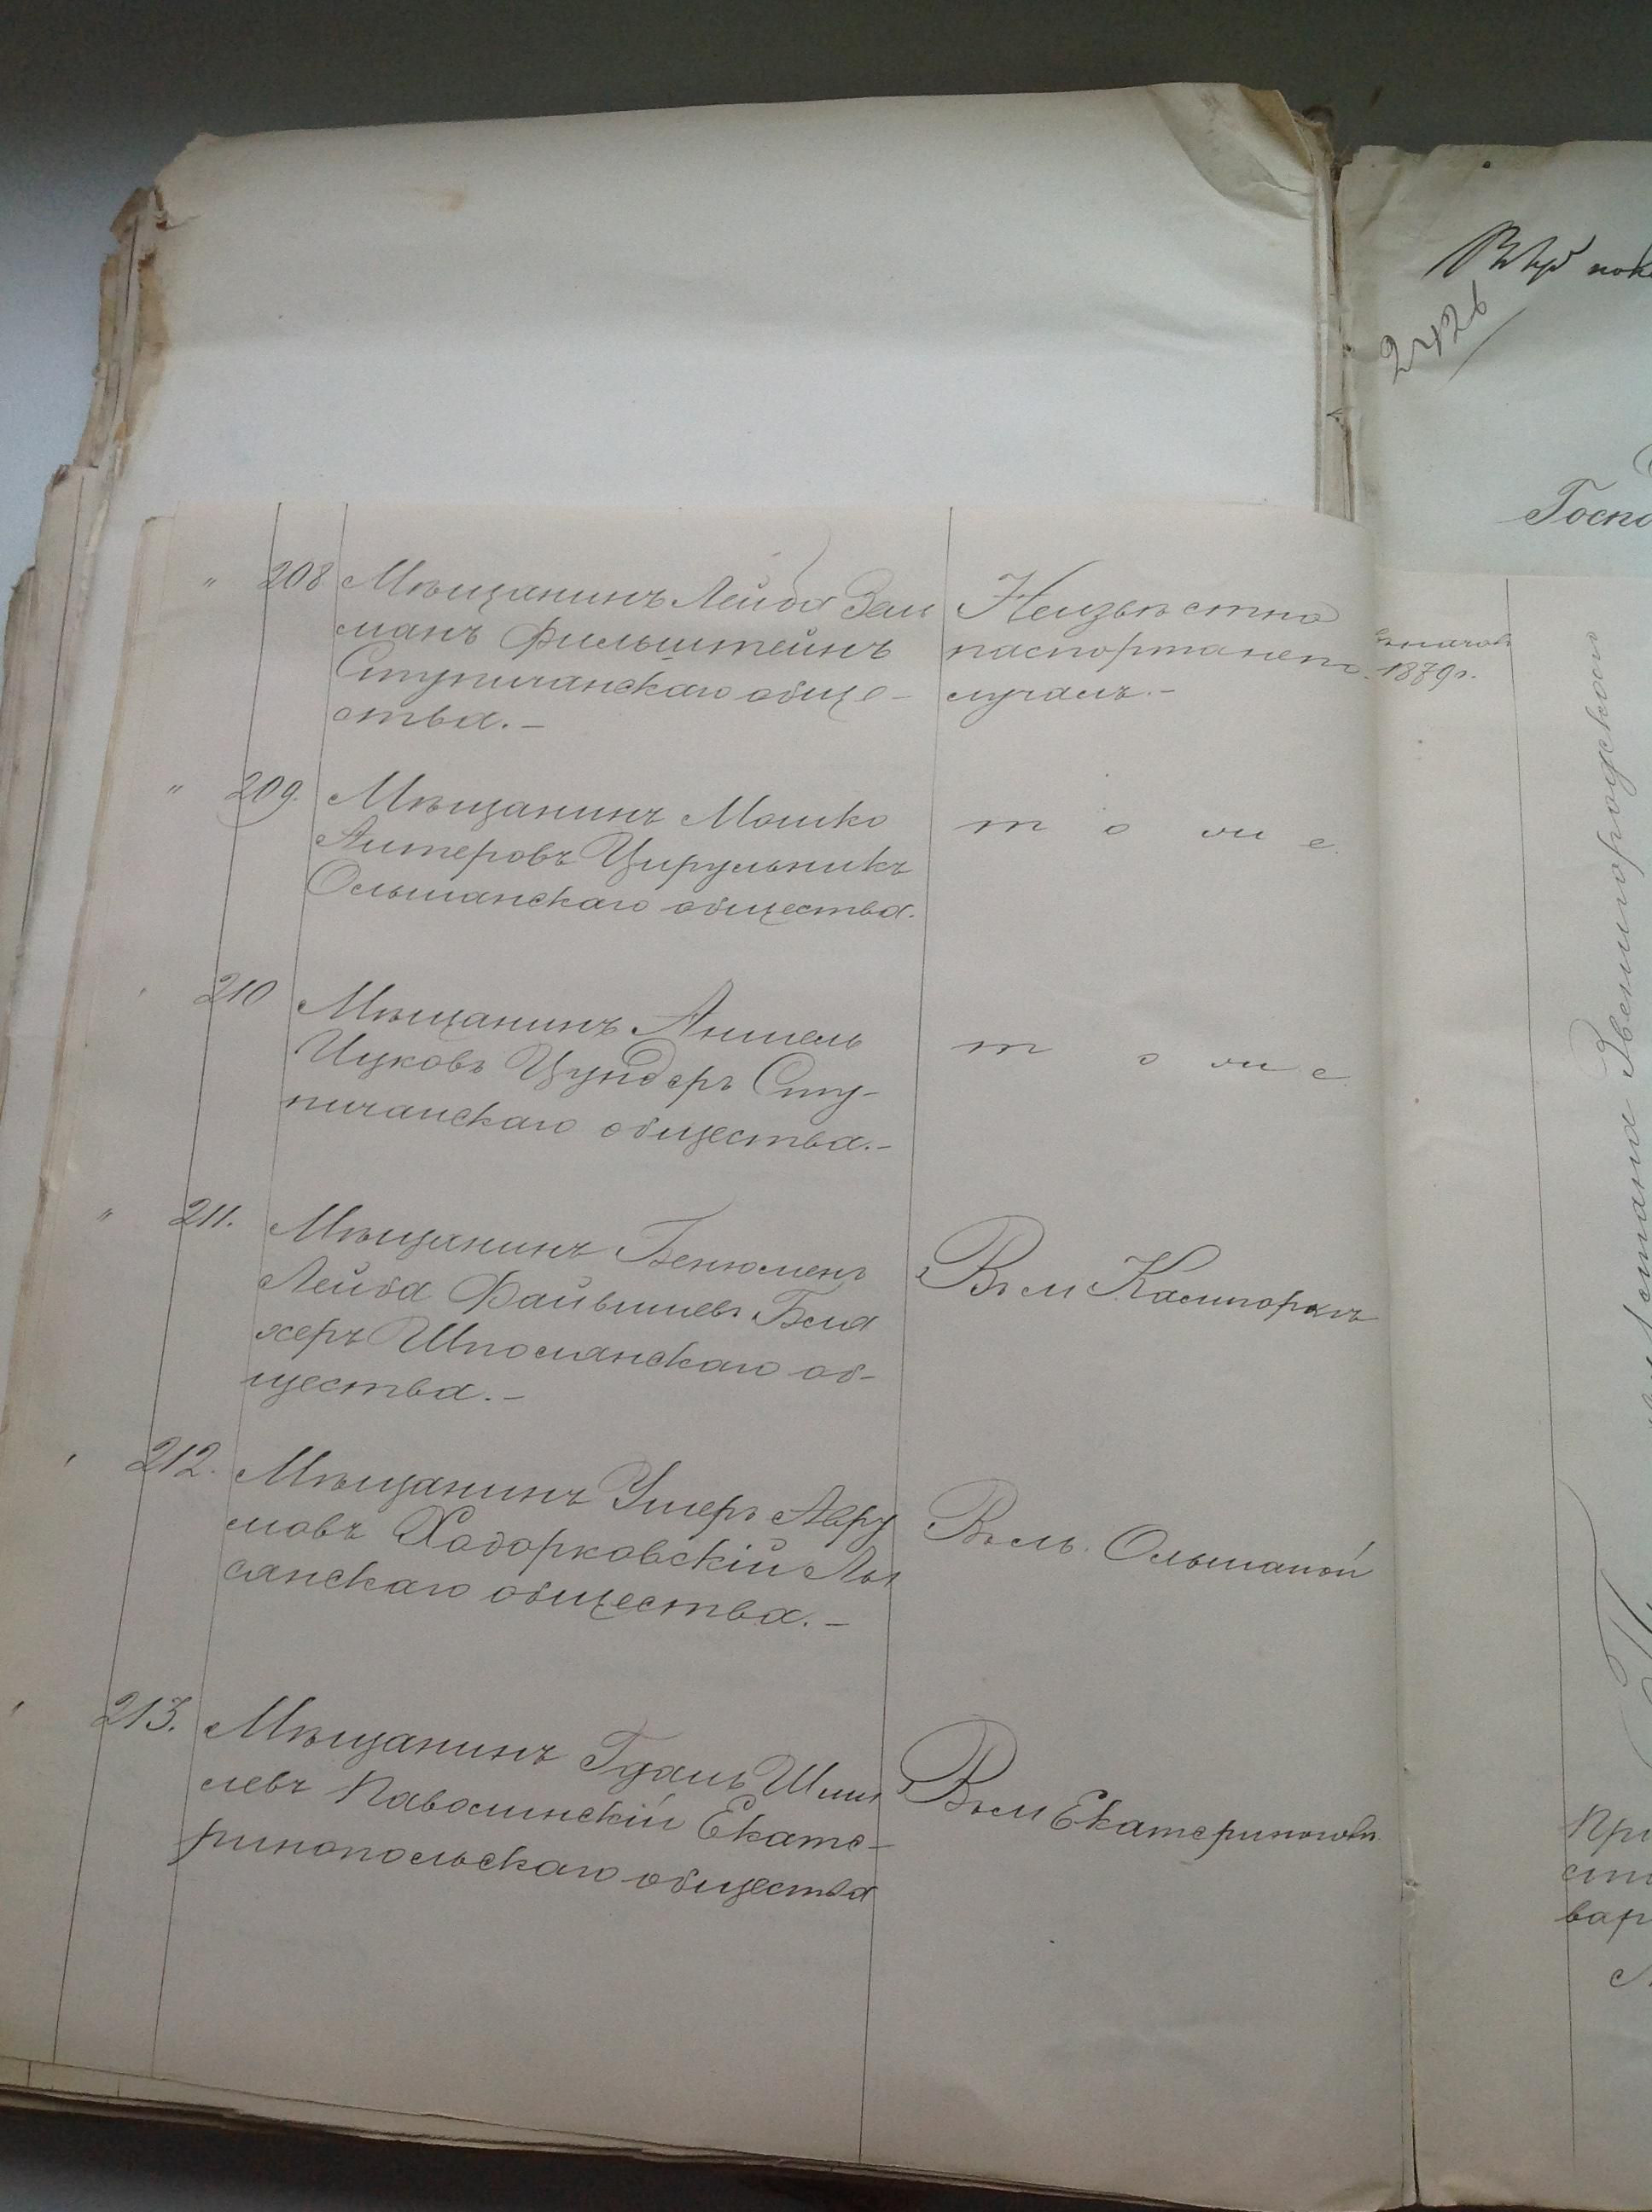 " 208 Мѣщанинъ Лейба Зел
манъ Фильштейнъ
Ступичанскаго обще-
ства.-
Неизвѣстно
паспорта непо
лучалъ.-
1879г.
" 209. Мѣщанинъ Мошко
Алтеровъ Цирульникъ
Ольшанскаго общества.
т о ж е.
210 Мѣщанинъ Аншель
Ицковъ Цундеръ Сту-
пичанскаго общества.-
т о ж е
" 211. Мѣщанинъ Бенюменъ
Лейба Файвишевъ Бля
херъ Шполянскаго об-
щества.-
Въ м
212. Мѣщанинъ Ушеръ Авру
мовъ Ходорковскій Лы
сянскаго общества.-
Въ м. Ольшаной
213. Мѣщанинъ Гдаль Шми
левъ Паволинскій Екате-
ринопольскаго общества
Въ м Екатеринополѣ
2426
Госпо
Звенигородскаго
При
ста
вар